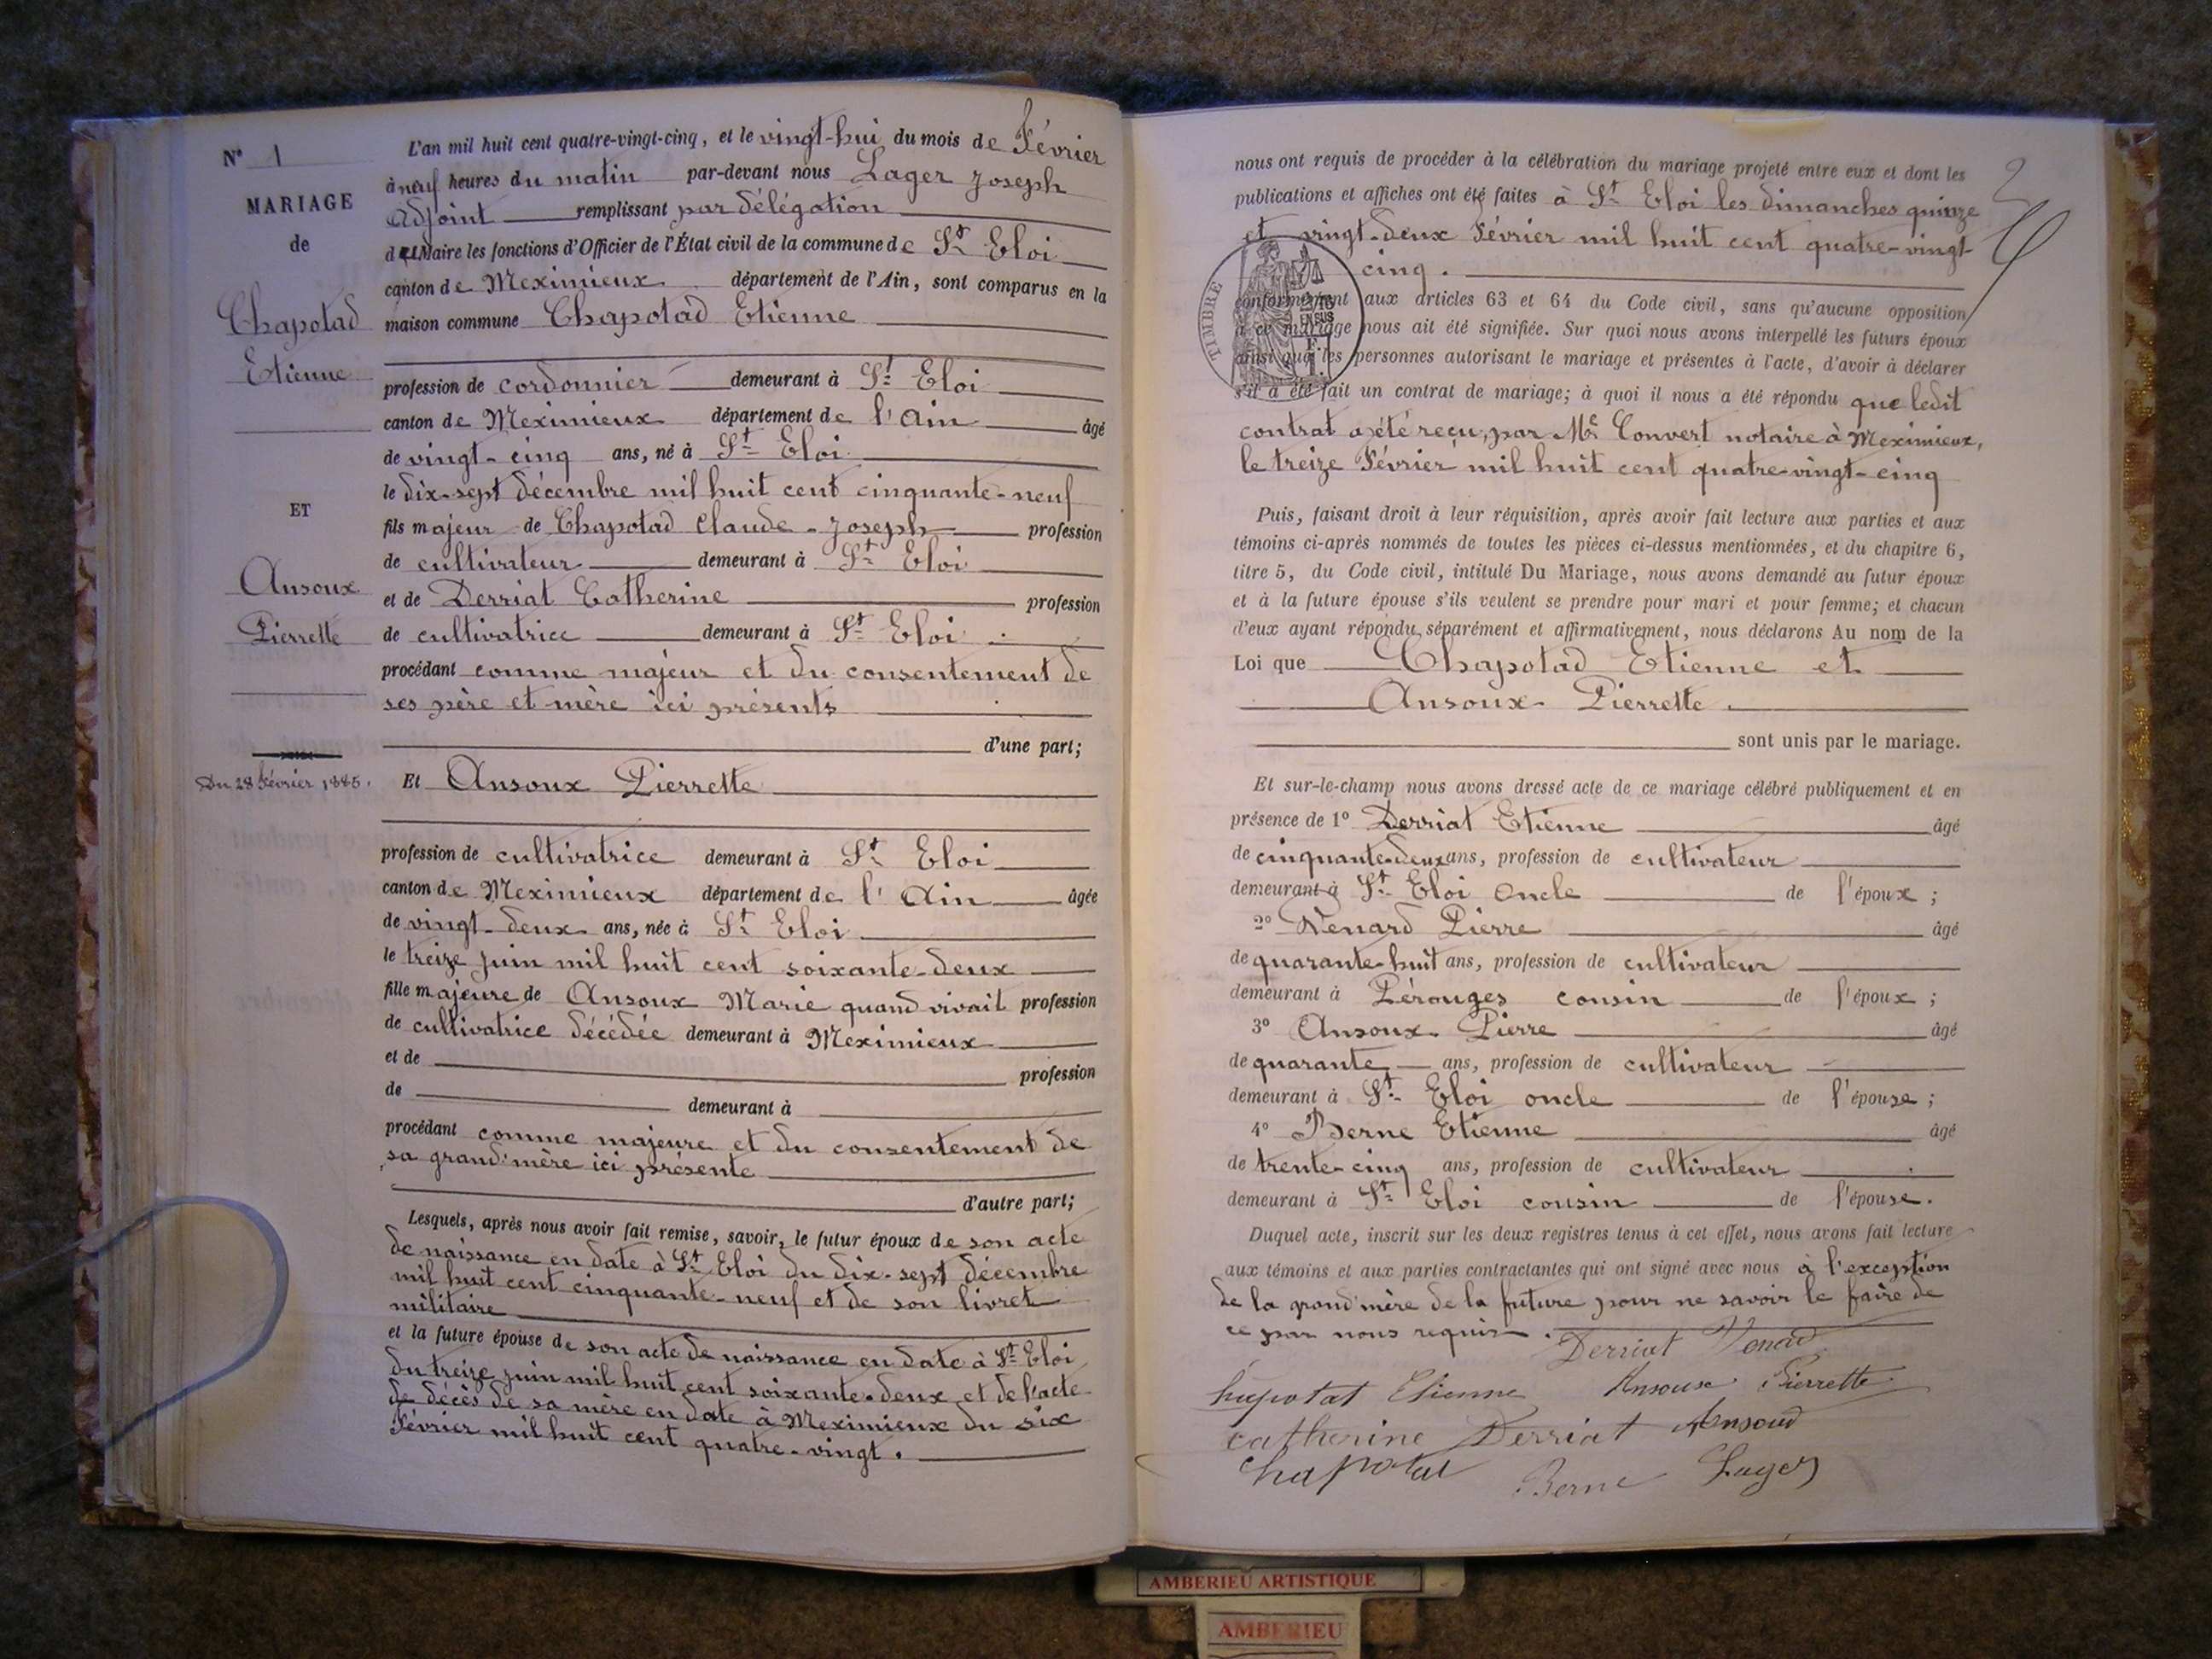 N° 1
MARIAGE
de
Chapotad
Etienne
ET
Ansoux
Pierrette
Du 28 février 1885.
L'an mil huit cent quatre-vingt-cinq, et le vingt-hui du mois de Février
à neuf heures du matin par-devant nous Lager Joseph
Adjoint remplissant par délégation
du Maire les fonctions d'Officier de l'État civil de la commune de St Eloi
canton de Meximieux département de l'Ain, sont comparus en la
maison commune Chapotad Etienne
profession de cordonnier demeurant à St Eloi
canton de Meximieux département de l'Ain âgé
de vingt-cinq ans, né à St Eloi
le dix-sept décembre mil huit cent cinquante-neuf
fils majeur de Chapotad Claude-Joseph profession
de cultivateur demeurant à St Eloi
et de Derriat Catherine profession
de cultivatrice demeurant à St Eloi
procédant comme majeur et du consentement de
ses père et mère ici présents
d'une part;
Et Ansoux Pierrette
profession de cultivatrice demeurant à St Eloi
canton de Meximieux département de l'Ain âgée
de vingt-deux ans, née à St Eloi
le treize juin mil huit cent soixante-deux
fille majeure de Ansoux Marie quand vivait profession
de cultivatrice décédée demeurant à Meximieux
et de profession
de demeurant à
procédant comme majeure et du consentement de
sa grand'mère ici présente
d'autre part;
Lesquels, après nous avoir fait remise, savoir, le futur époux de son acte
de naissance en date à St Eloi du dix-sept décembre
mil huit cent cinquante-neuf et de son livret
militaire
et la future épouse de son acte de naissance en date à St Eloi
du treize juin mil huit cent soixante-deux et de l'acte
de décès de sa mère en date à Meximieux du six
Février mil huit cent quatre-vingt.
nous ont requis de procéder à la célébration du mariage projeté entre eux et dont les
publications et affiches ont été faites à St Eloi les dimanches quinze
et vingt-deux Février mil huit cent quatre-vingt
cinq.
TIMBRE
EN SUS
conformément aux articles 63 et 64 du Code civil, sans qu'aucune opposition
à ce mariage nous ait été signifiée. Sur quoi nous avons interpellé les futurs époux
ainsi que les personnes autorisant le mariage et présentes à l'acte, d'avoir à déclarer
s'il a été fait un contrat de mariage; à quoi il nous a été répondu que ledit
contrat a été reçu, par Me Convert notaire à Meximieux,
le treize Février mil huit cent quatre-vingt-cinq
Puis, faisant droit à leur réquisition, après avoir fait lecture aux parties et aux
témoins ci-après nommés de toutes les pièces ci-dessus mentionnées, et du chapitre 6,
titre 5, du Code civil, intitulé Du Mariage, nous avons demandé au futur époux
et à la future épouse s'ils veulent se prendre pour mari et pour femme; et chacun
d'eux ayant répondu séparément et affirmativement, nous déclarons Au nom de la
Loi que Chapotad Etienne et
Ansoux Pierrette
sont unis par le mariage.
Et sur-le-champ nous avons dressé acte de ce mariage célébré publiquement et en
présence de 1° Derriat Etienne âgé
de cinquante-deux ans, profession de cultivateur
demeurant à St Eloi oncle de l'époux;
2° Venard Pierre âgé
de quarante-huit ans, profession de cultivateur
demeurant à Pérouges cousin de l'époux;
3° Ansoux Pierre âgé
de quarante ans, profession de cultivateur
demeurant à St Eloi oncle de l'épouse;
4° Berne Etienne âgé
de trente-cinq ans, profession de cultivateur
demeurant à St Eloi cousin de l'épouse.
Duquel acte, inscrit sur les deux registres tenus à cet effet, nous avons fait lecture
aux témoins et aux parties contractantes qui ont signé avec nous à l'exception
de la grand'mère de la future pour ne savoir le faire de
ce par nous requis.
Derriat Venard
Etienne Ansoux Pierrette
catherine Derriat Ansoud
Berne Lager
AMBERIEU ARTISTIQUE
AMBERIEU